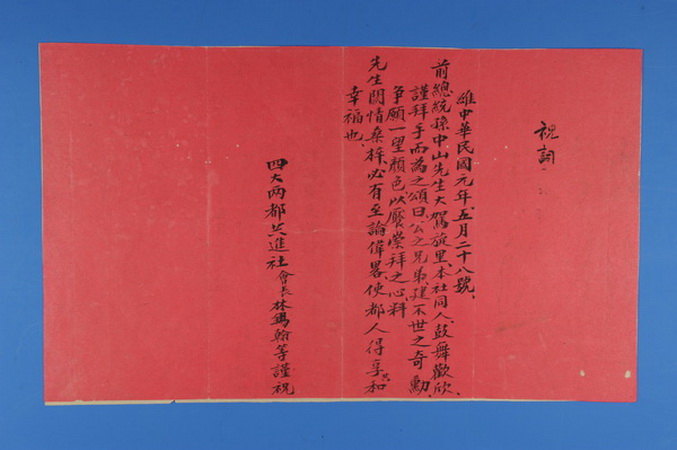 祝詞
維中華民國元年、五月二十八號、
前總統孫中山先生大駕旋里、本社同人、鼓舞歡欣、
謹拜手而為之頌曰、公之兄弟、建不世之奇勳、
爭願一望顏色、以饜崇拜之心、料
先生關情桑梓、必有至論偉畧、使都人得享共和
幸福也、
四大兩都共進社會長林鎰翰等謹祝